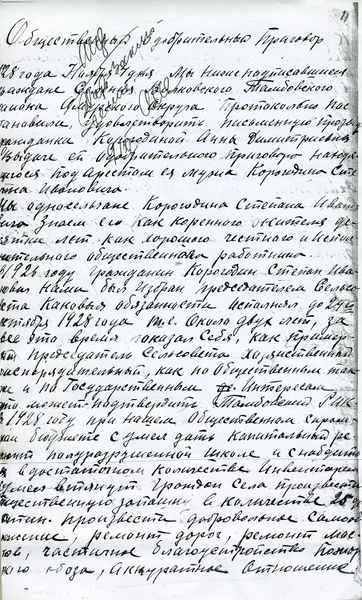 Общественный одобрительный приговор
1928 года Ноября дня Мы нижеподписавшиеся
граждане Тамбовского
района Амурского округа Протокольно пос
тановили, удовлетворить письменную просьбу
гражданки Корогодиной Анны Димитриевны
выдаче ей одобрительного приговора наход
щегося под арестом ея мужа Корогодина Сте
Ивановича.
Мы односельчане Корогодина Степана Ивано
вича Знаем его как коренного жителя де
лет, как хорошого честного и испол
нительного общественова работника.
1926 году Гражданин Корогодин Степан Ива
нами был избран председателем Сельсо
вета Каковыя обязанности исполнял до 24го
октября 1928 года т.е. Около двух лет, за
все это время показал Себя, как пример
председатель Сельсовета хозяйственный
распорядительный, как по Общественным так
и по Государственным Интересам,
что может подтвердить Тамбовский Рик
в 1928 году при нашем Общественном скром
ном бюджете Сумел дать капитальный ре
монт полуразрушенной школе и снабдить
в достаточном количестве Инвентарем
Сумел втянуть Граждан Села произвести
общественную запашку в количестве 28
произвести добровольное Само
ремонт дорог, ремонт мос
тов, частичное благоустройство Пожар
ного обоза, Аккуратное Отношение